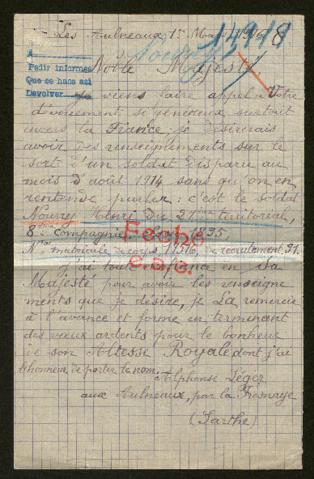 Les Aulneaux, 1er Mai 1916
14918
Noble Majesté
A
Pedir informes
Que se hace así
Devolver
Je viens faire appel à Votre
dévouement si généreux surtout
envers la France, je désirerais
avoir des renseignements sur le
sort d'un soldat disparu au
mois d'août 1914 sans qu'on en
entende parler : c'est le soldat
Nourry Henri du 21me territorial,
8e Compagnie
Fecho
e.a.c.
No matricule de recrutement, 91.
j'ai toute confiance en Sa
Majesté pour avoir les renseigne
ments que je désire, je La remercie
à l'avance et forme en terminant
des vœux ardents pour le bonheur
de son Altesse Royale dont j'ai
l'honneur de porter le nom.
Alphonse Léger
aux Aulneaux, par la Fresnaye
(Sarthe)